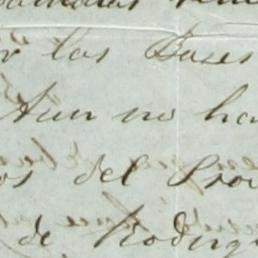 r las Bases
Aun no ha
os del Pro
de Rodrig